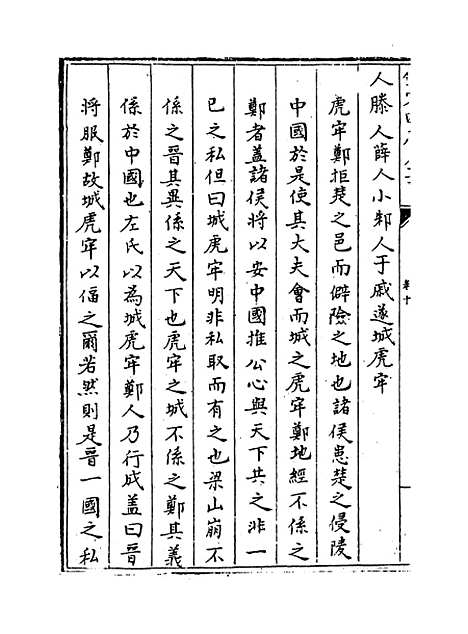 人滕人薛人小邾人于戚遂城虎牢
虎牢鄭拒楚之邑而僻險之地也諸侯患楚之侵陵
中國於是使其大夫會而城之虎牢鄭地經不係之
鄭者蓋諸侯將以安中國推公心與天下共之非一
已之私但曰城虎牢明非私取而有之也梁山崩不
係之晉其異係之天下也虎牢之城不係之鄭其義
係於中國也左氏以為城虎牢鄭人乃行成蓋曰晉
將服鄭故城虎牢以偪之爾若然則是晉一國之私